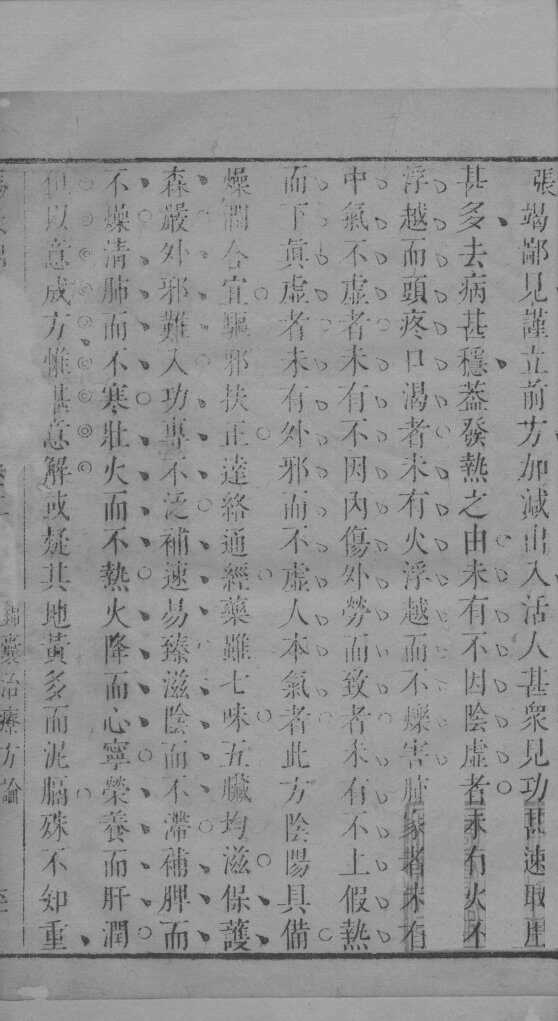 張竭鄙見謹立前方加減出入活人甚衆見功甚速取用
甚多去病甚穩蓋發熱之由未有不因陰虛者未有火不
浮越而頭疼口渴者未有火浮越而不爍害臟家者未有
中氣不虛者未有不因內傷外勞而致者未有不上假熱
而下眞虛者未有外邪而不虛人本氣者此方陰陽具備
燥潤合宜驅邪扶正達絡通經藥雖七味五臟均滋保護
森嚴外邪難入功專不泛補速易臻滋陰而不滯補脾而
不燥淸肺而不寒壯火而不熱火降而心寧榮養而肝潤
但以意成方惟甚意解或疑其地黃多而泥膈殊不知重
錦囊治療方論